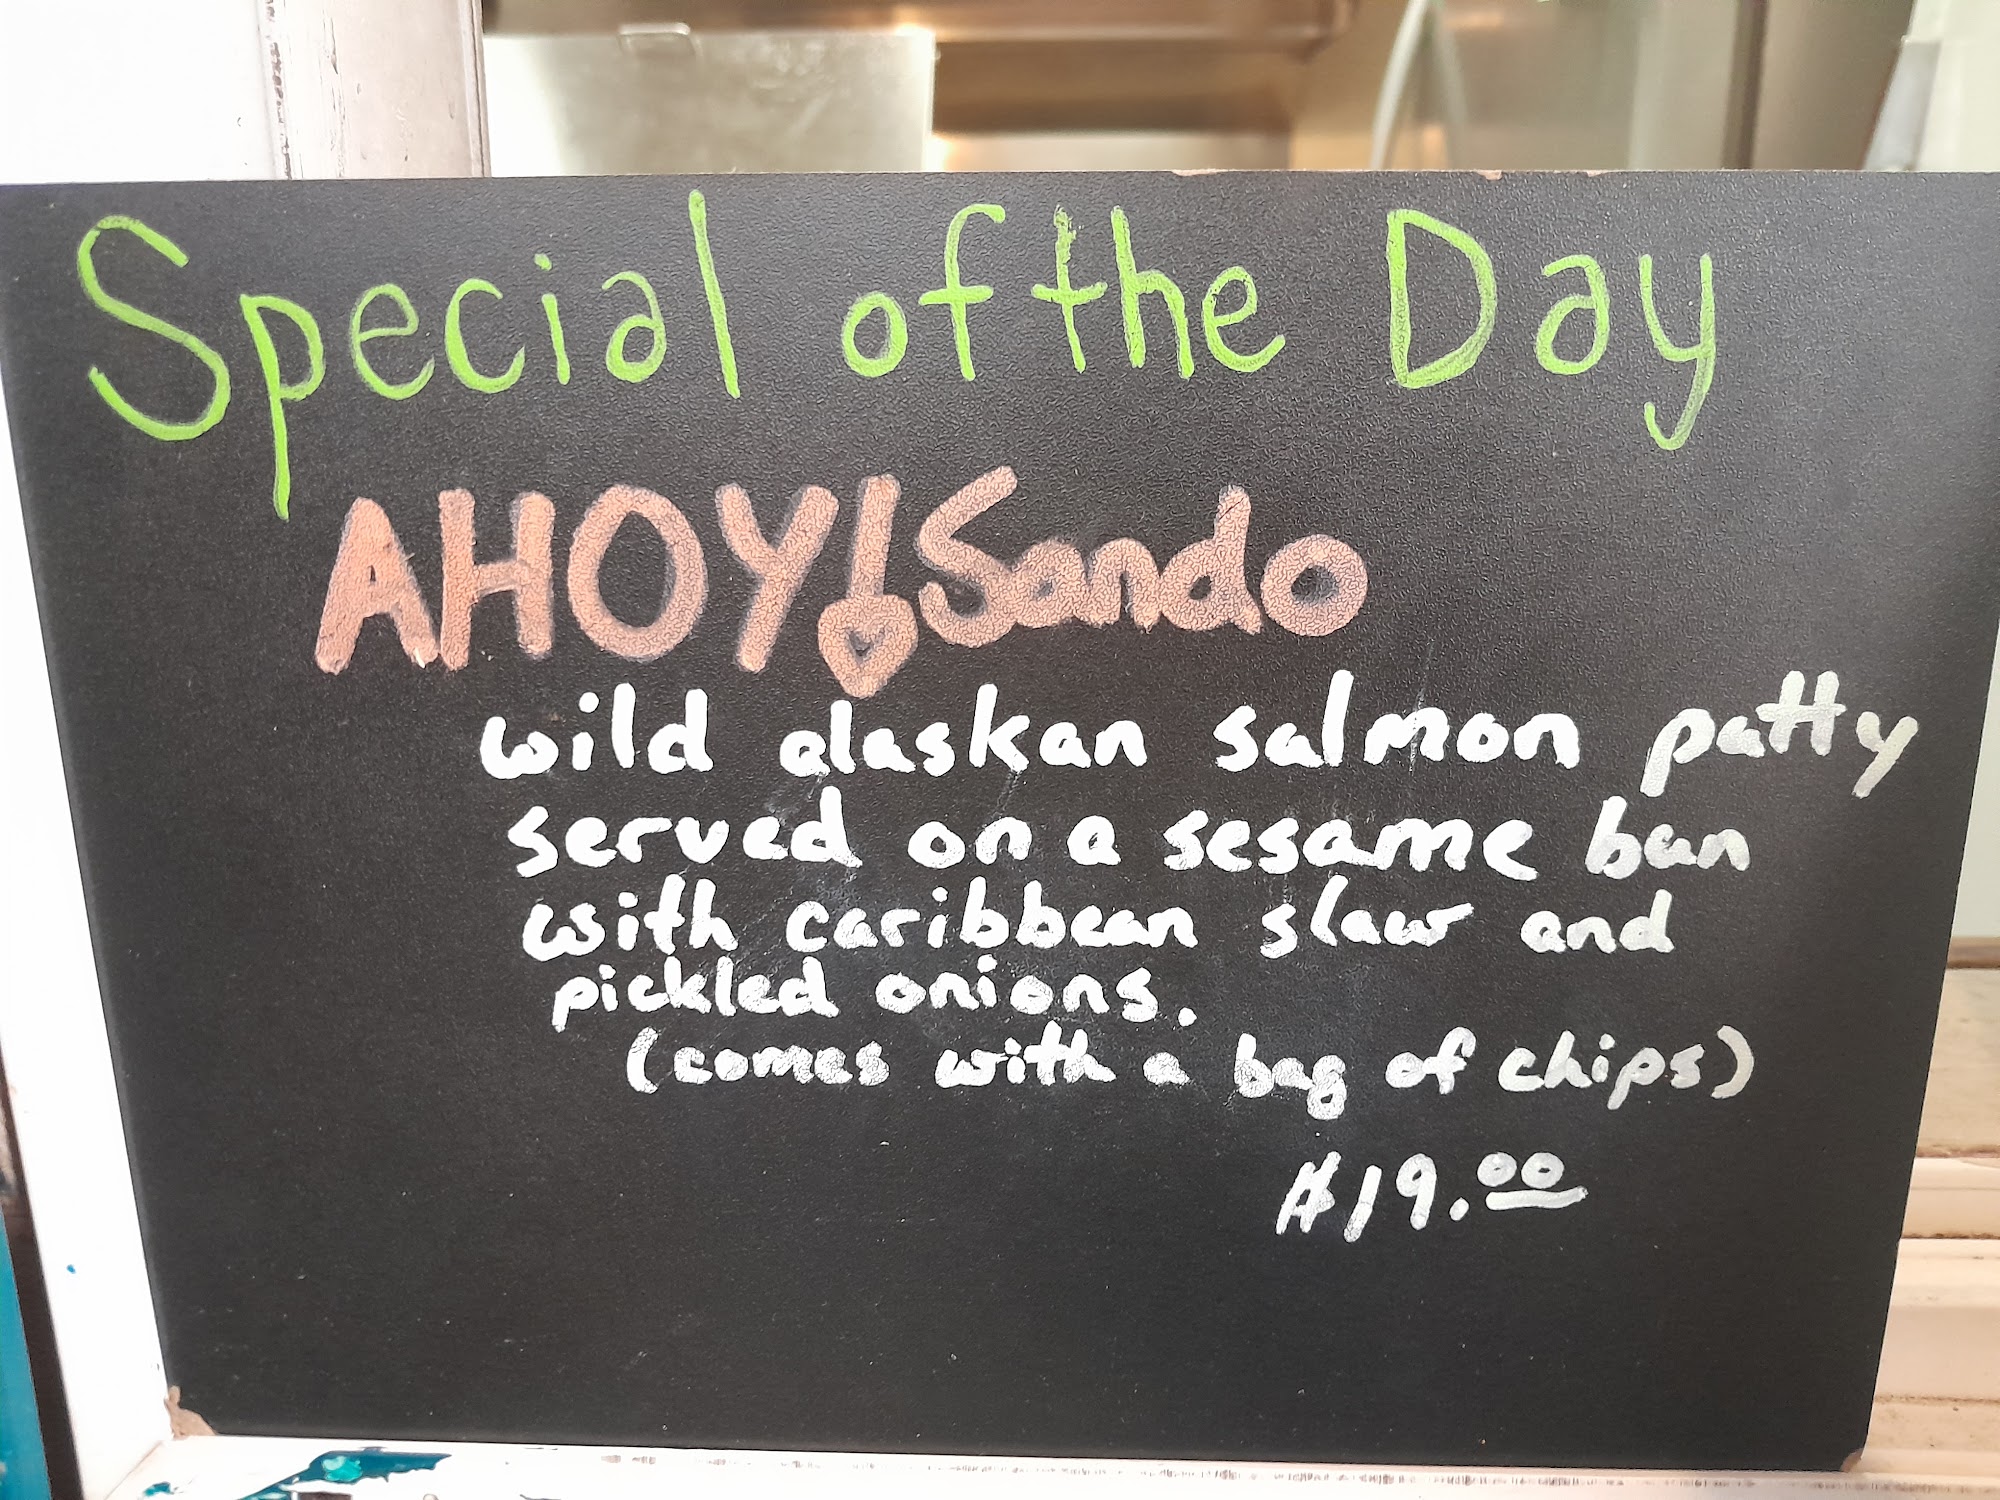 Special of the Day
AHOY! Sando
wild alaskan salmon patty
served on a sesame bun
with caribbean slaw and
pickled onions.
(comes with a bag of chips)
$19.00